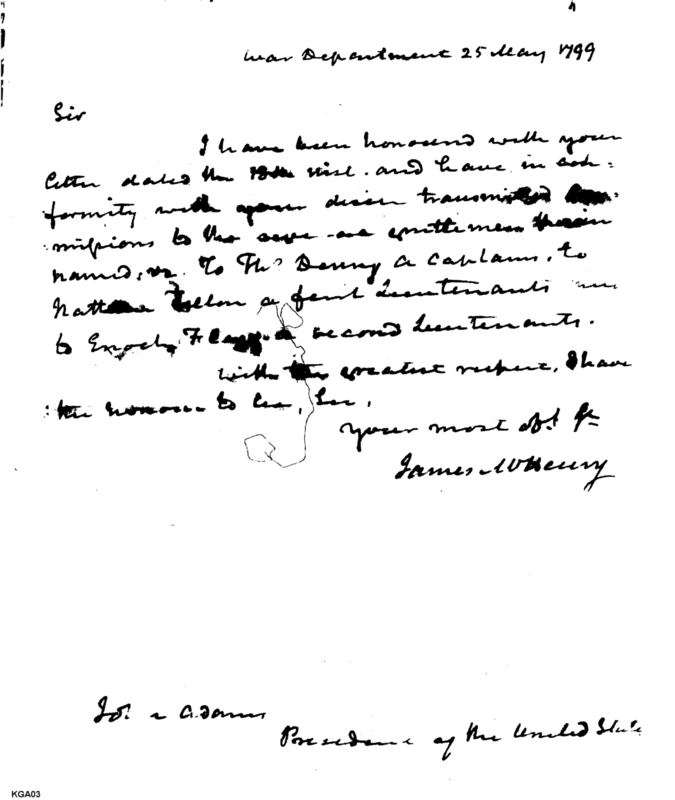 War Department 25 May 1799
Sir
I have been honoured with your
letter dated the 18th inst. and have in con:
formity with your desire transmitted Com:
missions to the gentlemen therein
named, viz. To Tho.s Denny a Captains, to
a first Lieutenants
to Enoch a second Lieutenants.
with the greatest respect, I have
the honour to be, Sir,
your most obt. St
James McHenry
John Adams
President of the United States
KGA03